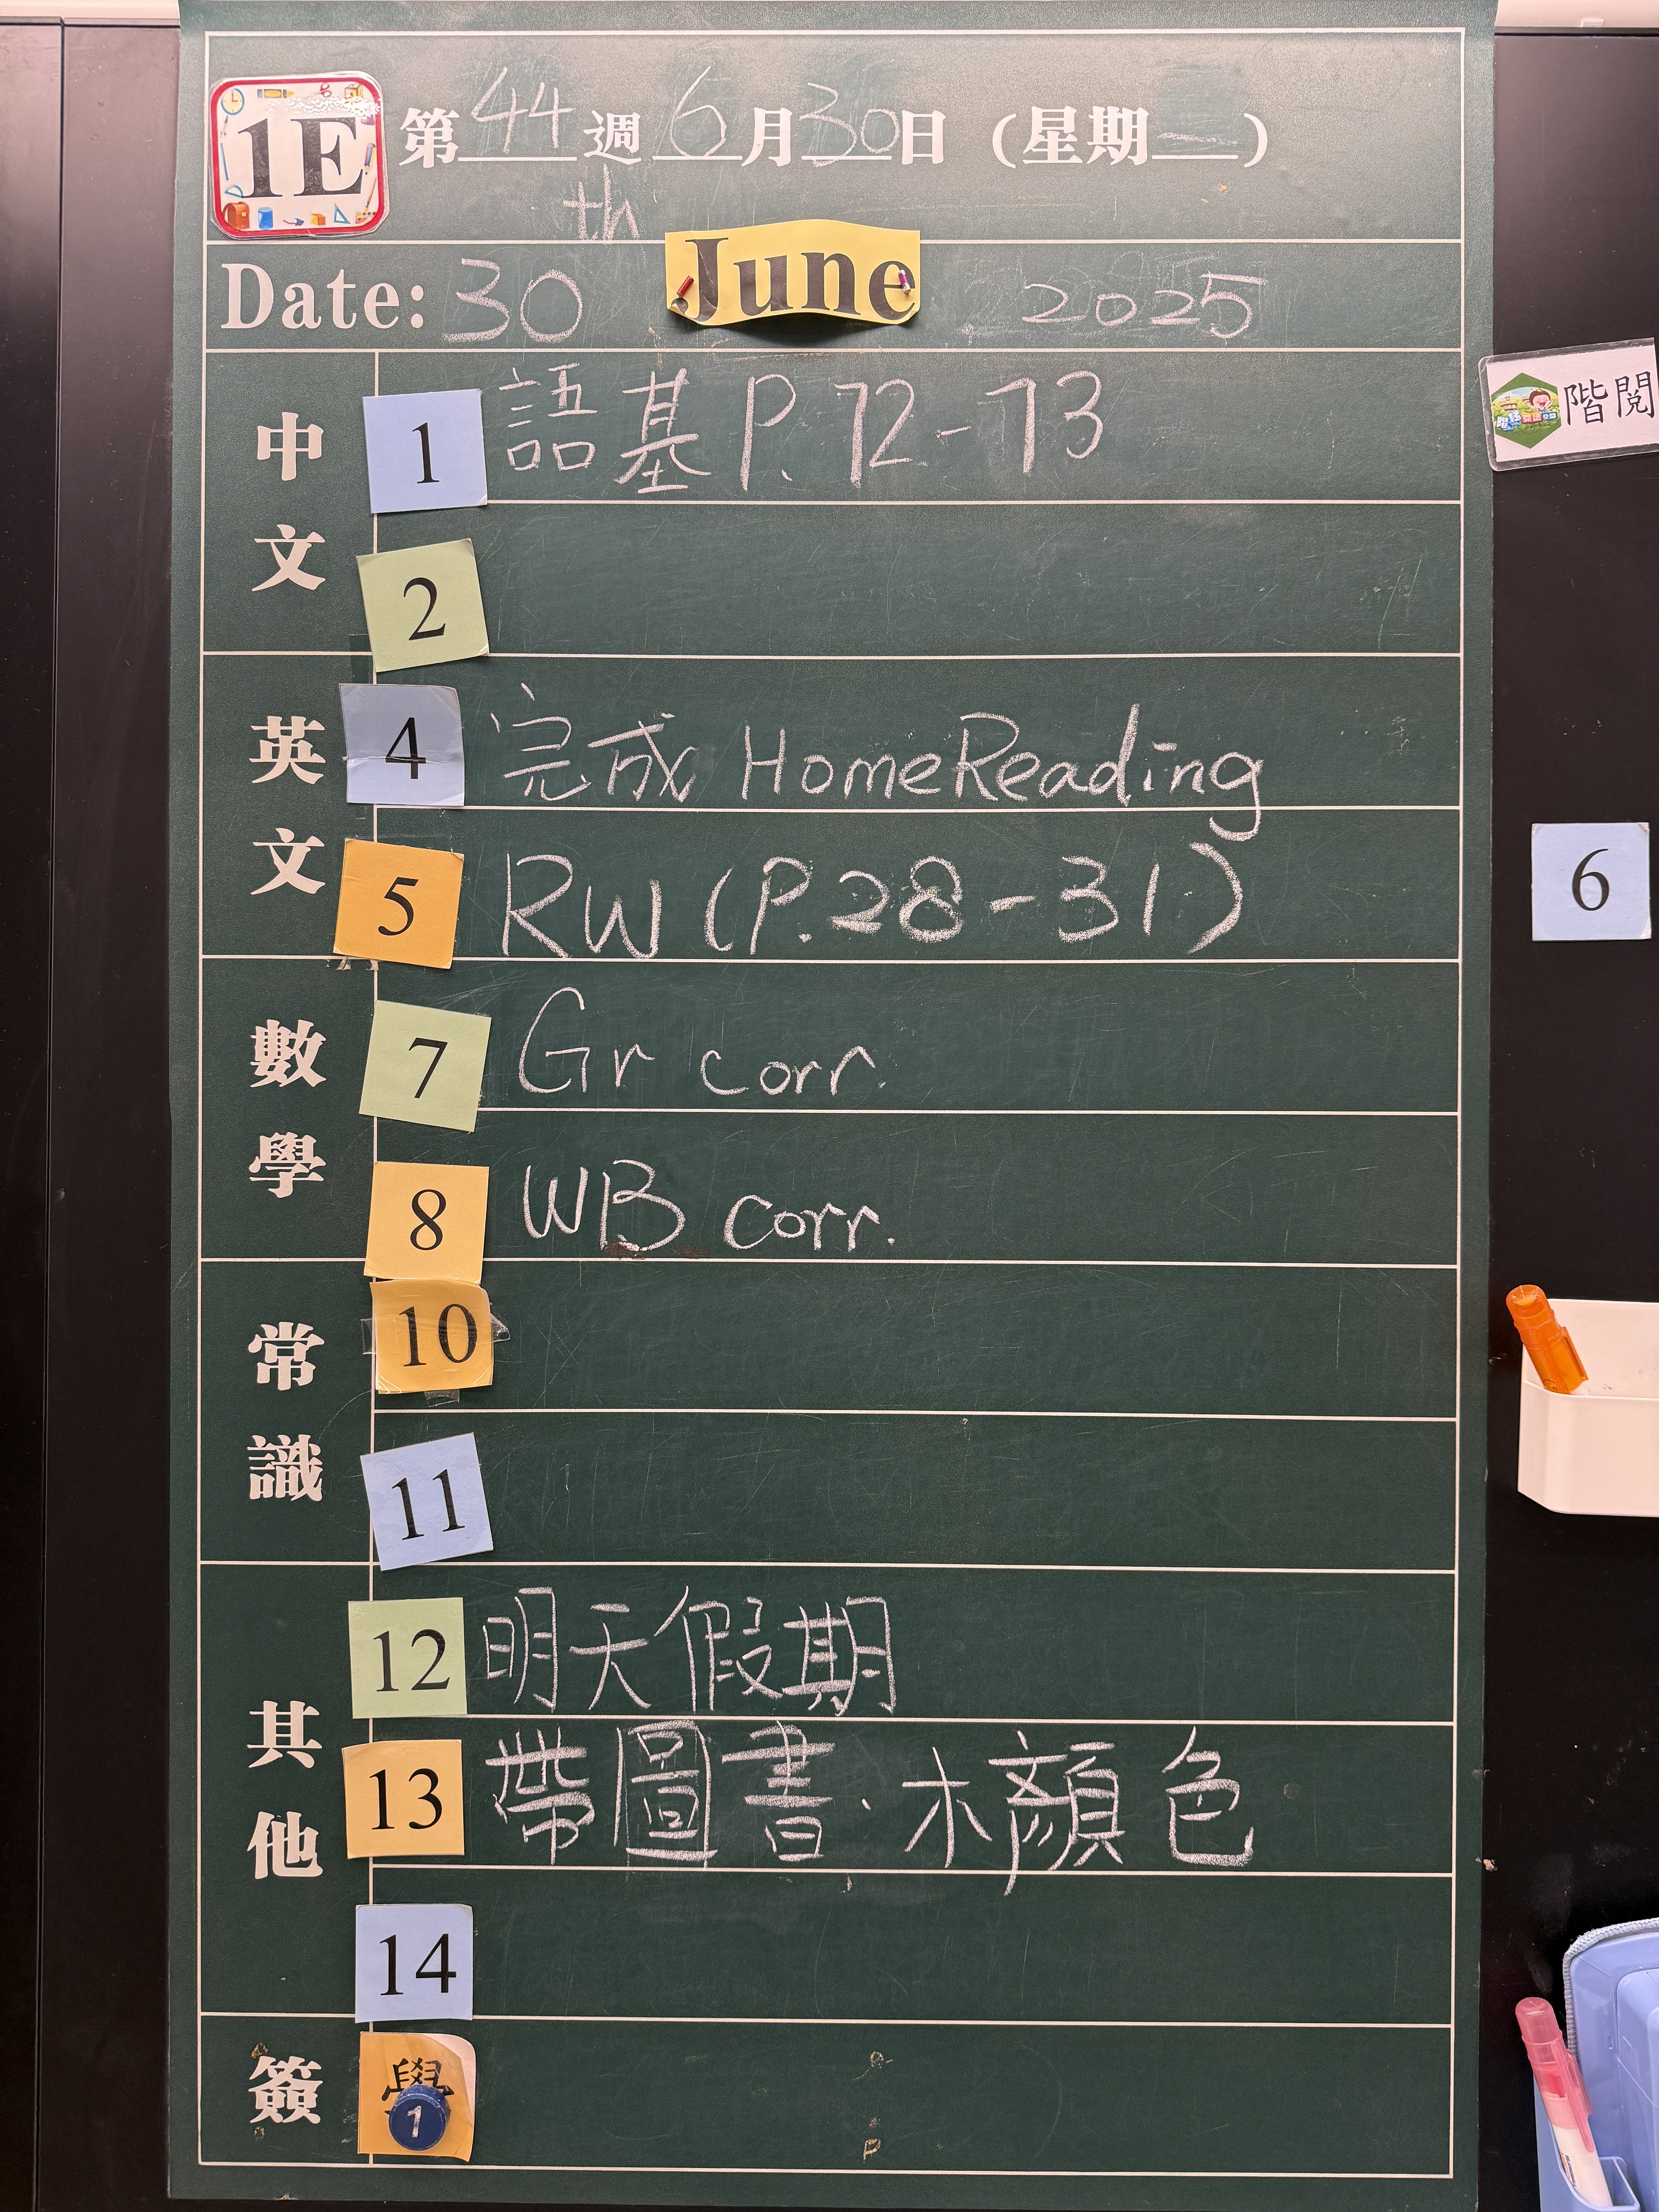 1E 第44週 6月30日(星期一)
Date: 30th June 2025
中文
1 語基 P. 72-73
2
英文
4 完成 HomeReading
5 RW (P.28-31)
數學
7 Gr corr.
8 WB corr.
常識
10
11
其他
12 明天假期
13 帶圖書·木顏色
14
簽
1
階閱
6